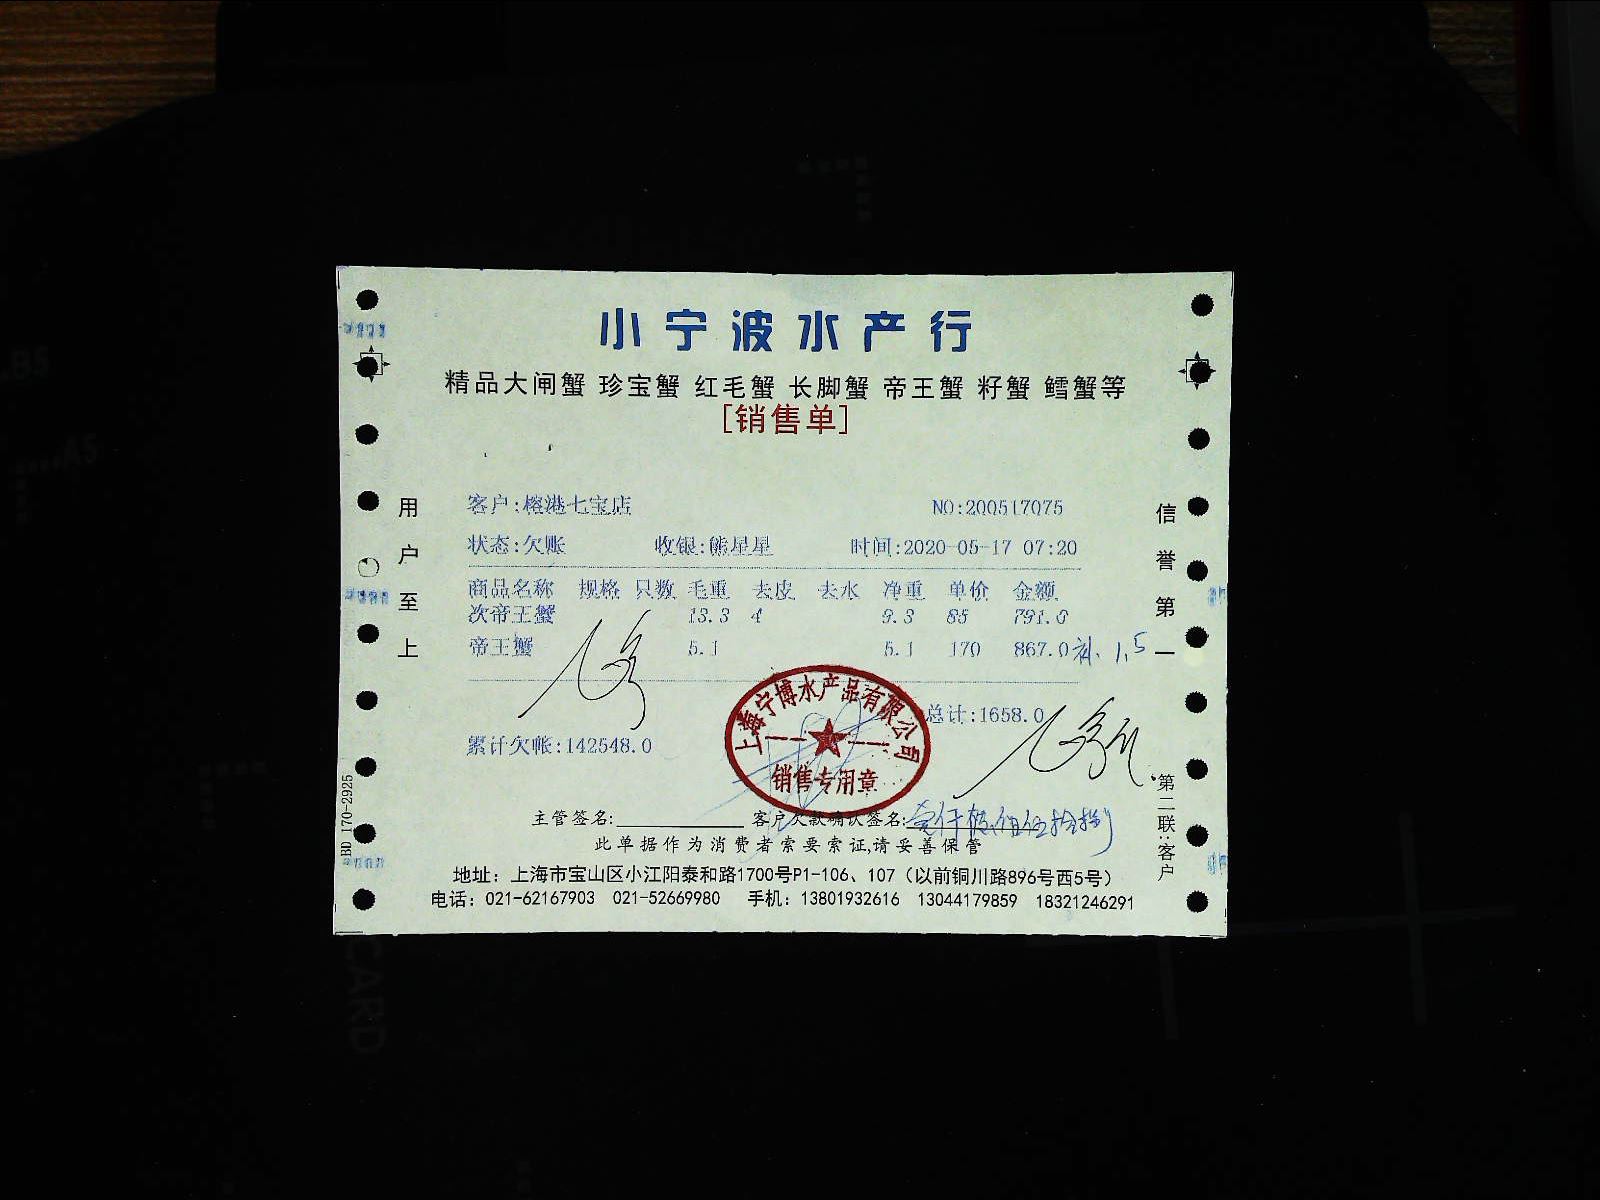 小宁波水产行
精品大闸蟹 珍宝蟹 红毛蟹 长脚蟹 帝王蟹 籽蟹 鳕蟹等
[销售单]
客户:榕港七宝店 NO:200517075
状态:欠账 收银:熊星星 时间:2020-05-17 07:20
商品名称 规格 只数 毛重 去皮 去水 净重 单价 金额
次帝王蟹 13.3 4 9.3 85 791.0
帝王蟹 5.1 5.1 170 867.0 补、1.5
总计:1658.0
累计欠帐:142548.0
上海宁博水产品有限公司
销售专用章
主管签名: 客户欠款确认签名:
此单据作为消费者索要索证,请妥善保管
地址：上海市宝山区小江阳泰和路1700号P1-106、107（以前铜川路896号西5号）
电话：021-62167903 021-52669980 手机：13801932616 13044179859 18321246291
用户至上
信誉第一
第二联:客户
BD 170-2925
B5
A5
CARD